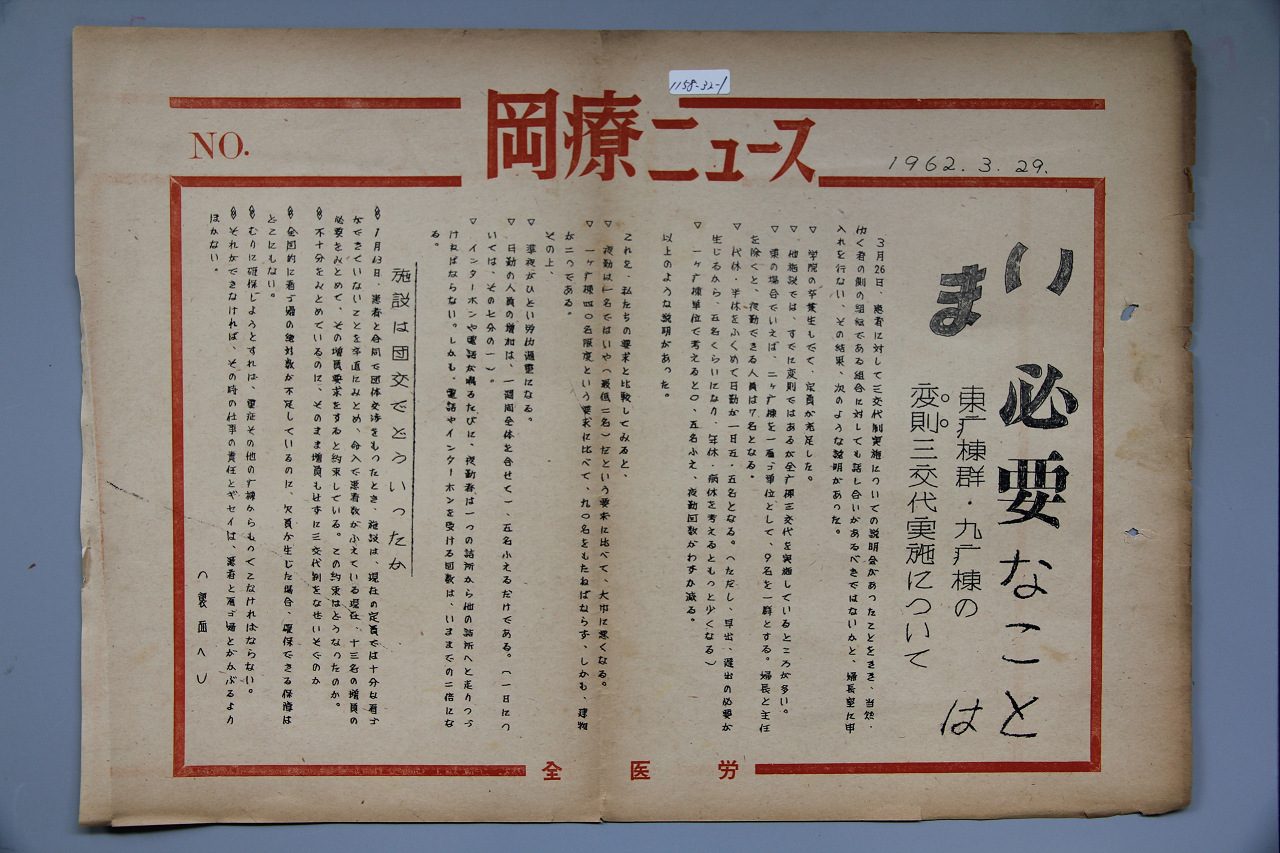 1158-32-1
岡療ニュース
NO.
1962.3.29.
いま必要なことは
東疒棟群・九疒棟の
変則三交代実施について
3月26日、患者に対して三交代制実施についての説明会があったことをきき、当然・
ゆく者の側の組織である組合に対しても話し合いがあるべきではないかと、婦長室に申
入れを行ない、その結果、次のような説明があった。
▽ 学院の卒業生しでて、定員が充足した。
▽ 他施設では、すでに変則ではあるが全疒棟三交代を実施しているところが多い。
▽ 東の場合でいえば、二ヶ疒棟を一看ゴ単位として、9名を一群とする。婦長と主任
を除くと、夜勤できる人員は7名となる。
▽ 代休・半休をふくめて日勤が一日五・五名となる。(ただし、早出、遅出の必要が
生じるから、五名くらいになり、年休・病休を考えるともっと少くなる)
▽ 一ヶ疒棟単位で考えると〇、五名ふえ、夜勤回数がわずか減る。
以上のような説明があった。
これを、私たちの要求と比較してみると、
▽ 夜勤は一名ではいや(最低二名)だという要求に比べて、大巾に悪くなる。
▽ 一ヶ疒棟四〇名限度という要求に比べて、九〇名をもたねばならず、しかも、建物
が二つである。
その上、
▽ 準夜がひどい労仂過重になる。
▽ 日勤の人員の増加は、一週間全体を合せて一、五名ふえるだけである。(一日につ
いては、その七分の一)。
▽ インターホンや電話が鳴るたびに、夜勤者は一つの詰所から他の詰所へと走りつづ
ければならない。しかも、電話やインターホンを受ける回数は、いままでの二倍にな
る。
施設は団交でどういったか
1月13日、患者と合同で団体交渉をもったとき、施設は、現在の定員では十分な看ゴ
ができていないことを卒直にみとめ、命入で患者数がふえている現在、十三名の増員の
必要をみとめて、その増員要求をすると約束している。この約束はどうなったのか。
不十分をみとめているのに、そのまま増員もせずに三交代制をなぜいそぐのか
全国的に看ゴ婦の絶対数が不足しているのに、欠員が生じた場合、確保できる保障は
どこにもない。
むりに確保しようとすれば、重症その他の疒棟からもってこなければならない。
それができなければ、その時の仕事の責任とギセイは、患者と看ゴ婦とがかぶるより
ほかない。
(裏面へ)
全医労